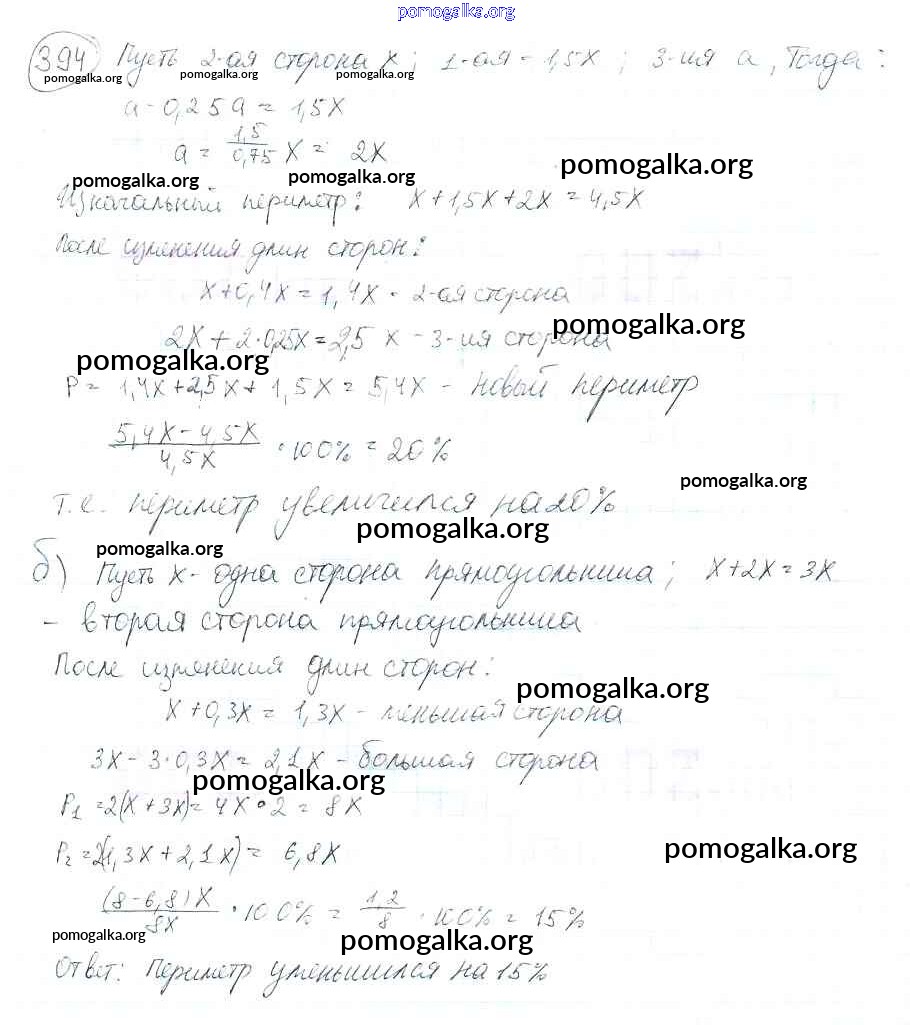 pomogalka.org
394 Пусть 2-ая сторона x; 1-ая - 1,5x; 3-ия a, Тогда:
pomogalka.org pomogalka.org pomogalka.org pomogalka.org
a - 0,25a = 1,5x
a = 1,5/0,75 x = 2x
pomogalka.org
pomogalka.org pomogalka.org
Изначальный периметр: x+1,5x+2x = 4,5x
После изменения длин сторон:
x+0,4x = 1,4x - 2-ая сторона
pomogalka.org
2x + 2·0,25x = 2,5 x - 3-ия сторона
pomogalka.org
P = 1,4x+2,5x+ 1,5x = 5,4x - новый периметр
5,4x - 4,5x / 4,5x · 100% = 20%
pomogalka.org
т.е. периметр увеличился на 20%
pomogalka.org
pomogalka.org
б) Пусть x - одна сторона прямоугольника; x+2x = 3x
- вторая сторона прямоугольника
После изменения длин сторон:
pomogalka.org
x+0,3x = 1,3x - меньшая сторона
3x - 3·0,3x = 2,1x - большая сторона
pomogalka.org
P1 = 2(x+3x) = 4x·2 = 8x
P2 = 2(1,3x+2,1x) = 6,8x
pomogalka.org
(8-6,8)x / 8x · 100% = 1,2/8 · 100% = 15%
pomogalka.org pomogalka.org
Ответ: Периметр уменьшился на 15%